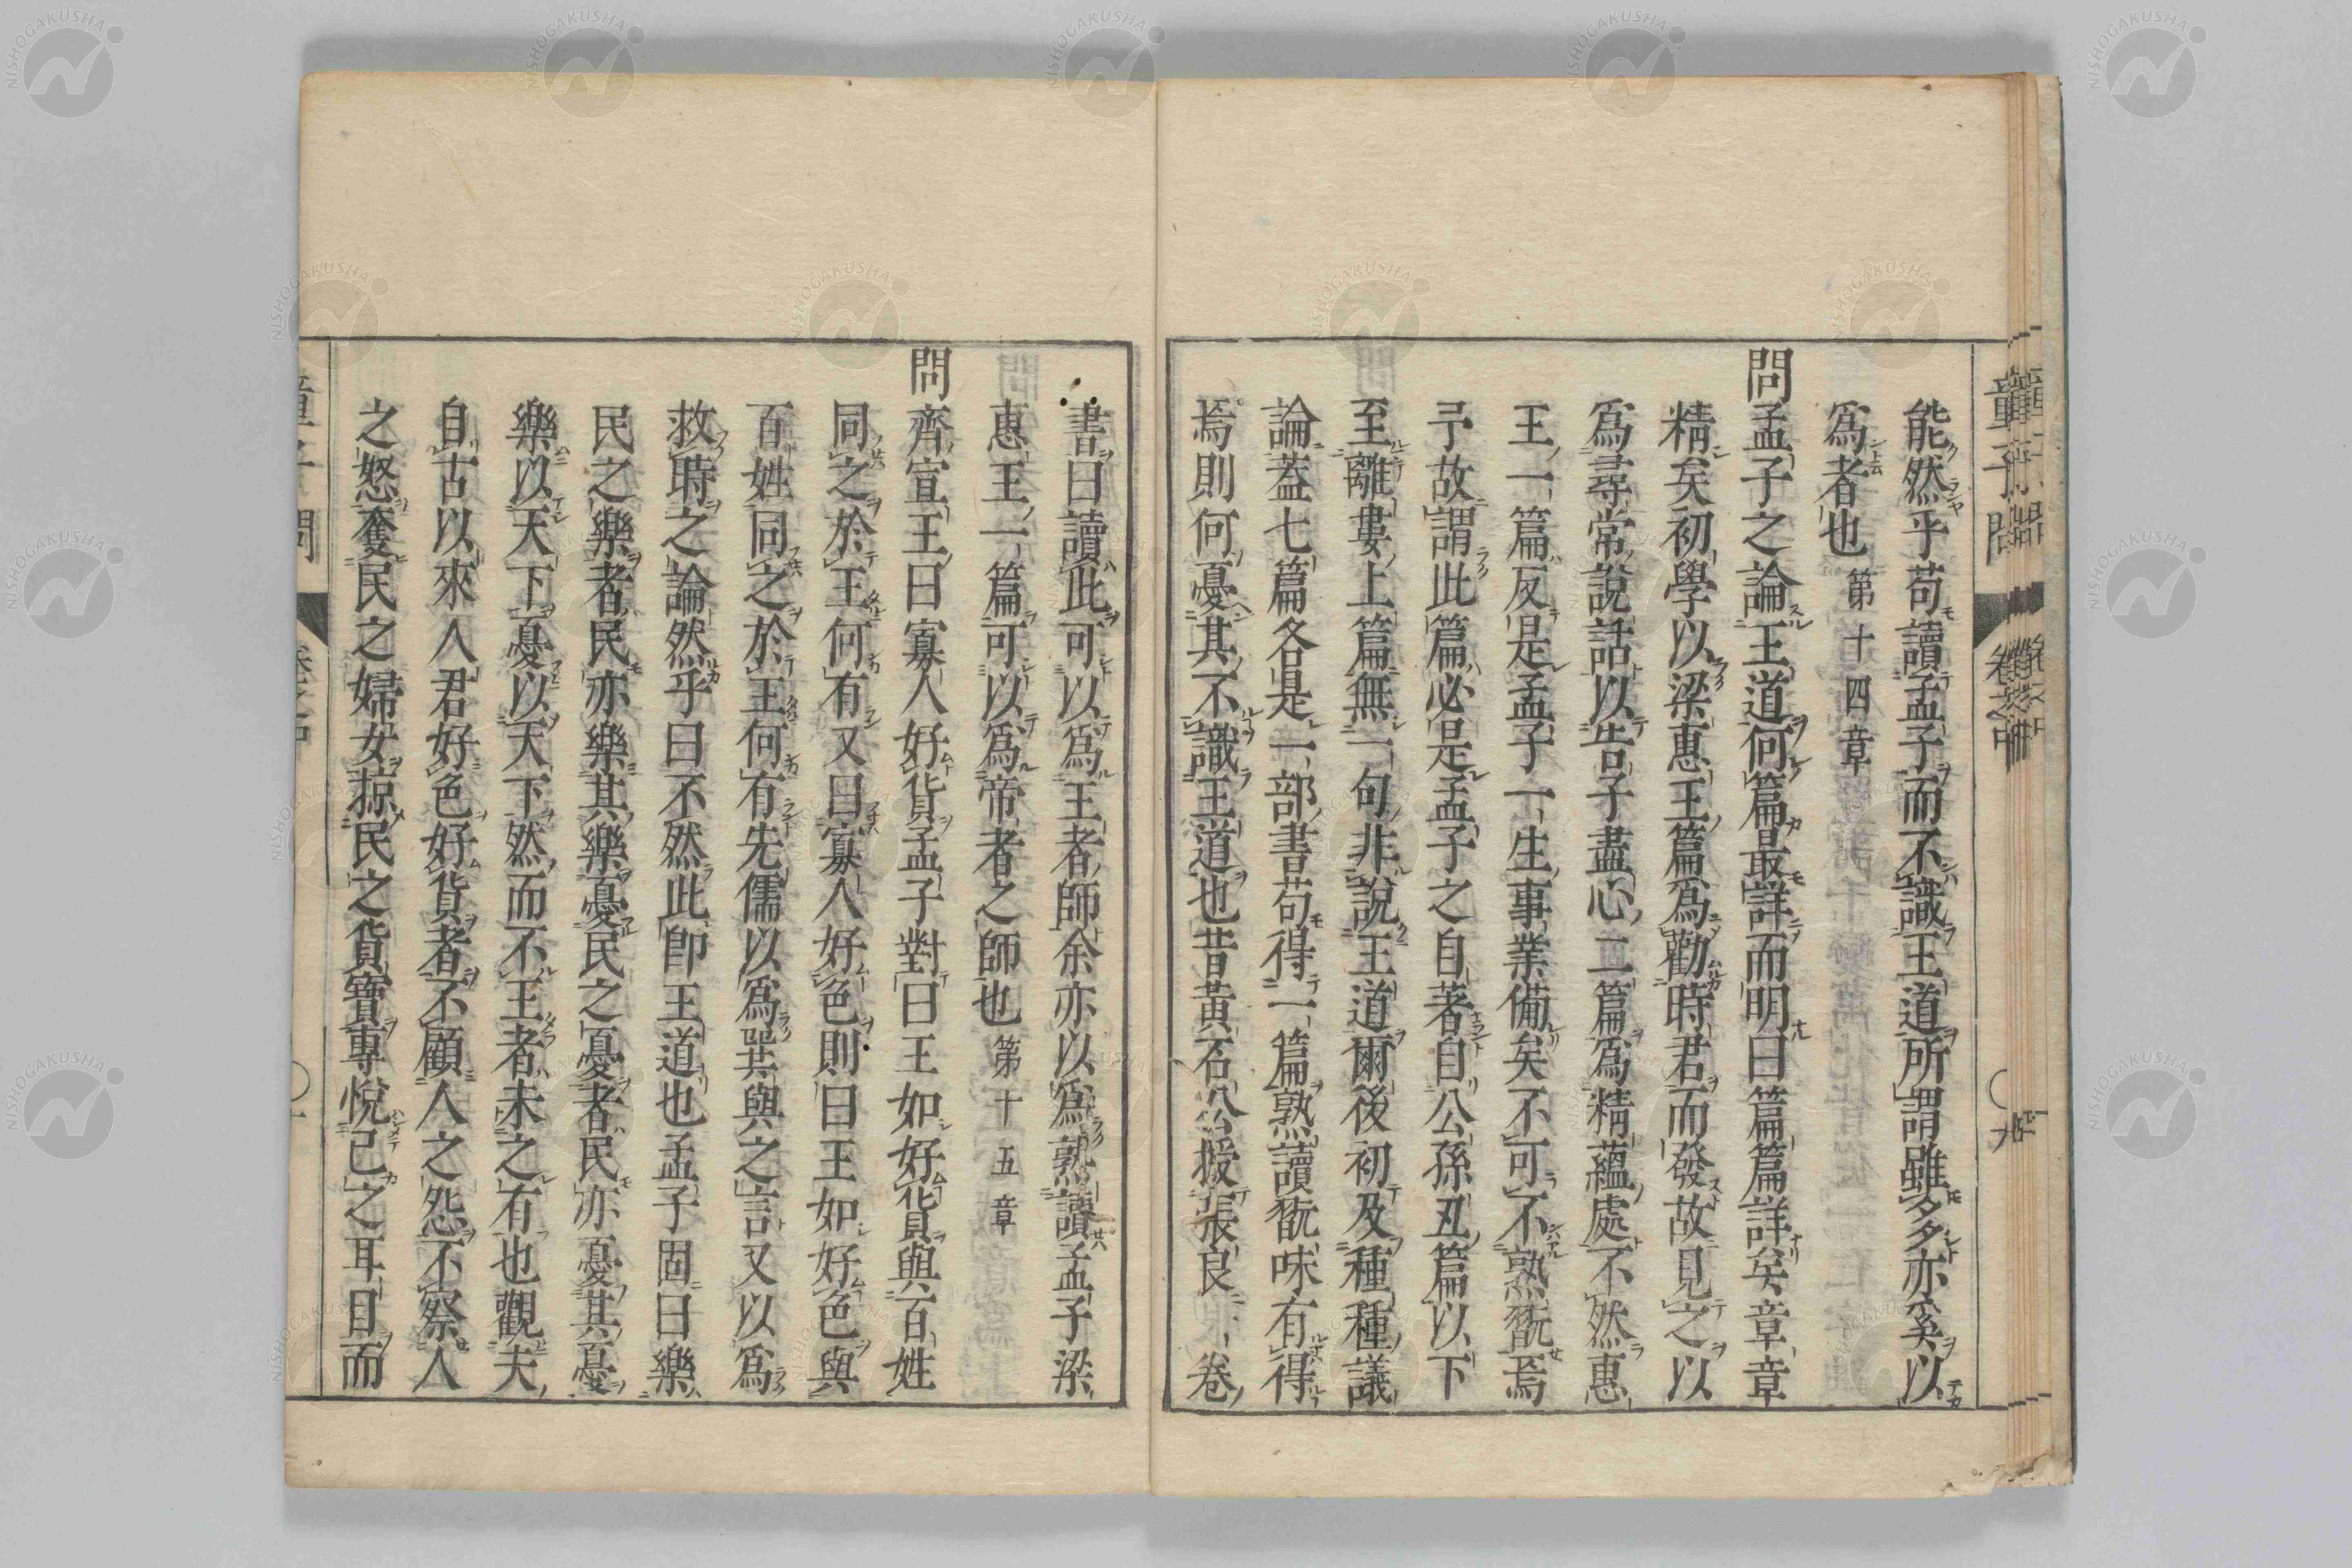 能然乎苟讀孟子而不識王道所謂雖多亦奚以
爲者也 第十四章
問孟子之論王道何篇最詳而明曰篇篇詳矣章章
精矣初學以梁惠王篇爲勸時君而發故見之以
爲尋常說話以告子盡心二篇爲精蘊處不然惠
王一篇反是孟子一生事業備矣不可不熟翫焉
予故謂此篇必是孟子之自著自公孫丑篇以下
至離婁上篇無一句非說王道爾後初及種種議
論蓋七篇各是一部書苟得一篇熟讀翫味有得
焉則何憂其不識王道也昔黃石公授張良一卷
書曰讀此可以爲王者師余亦以爲熟讀孟子梁
惠王一篇可以爲帝者之師也 第十五章
問齊宣王曰寡人好貨孟子對曰王如好貨與百姓
同之於王何有又曰寡人好色則曰王如好色與
百姓同之於王何有先儒以爲巽與之言又以爲
救時之論然乎曰不然此卽王道也孟子固曰樂
民之樂者民亦樂其樂憂民之憂者民亦憂其憂
樂以天下憂以天下然而不王者未之有也觀夫
自古以來人君好色好貨者不顧人之怨不察人
之怒奪民之婦女掠民之貨寶專悅己之耳目而
童子問 卷之中 九
NISHOGAKUSHA